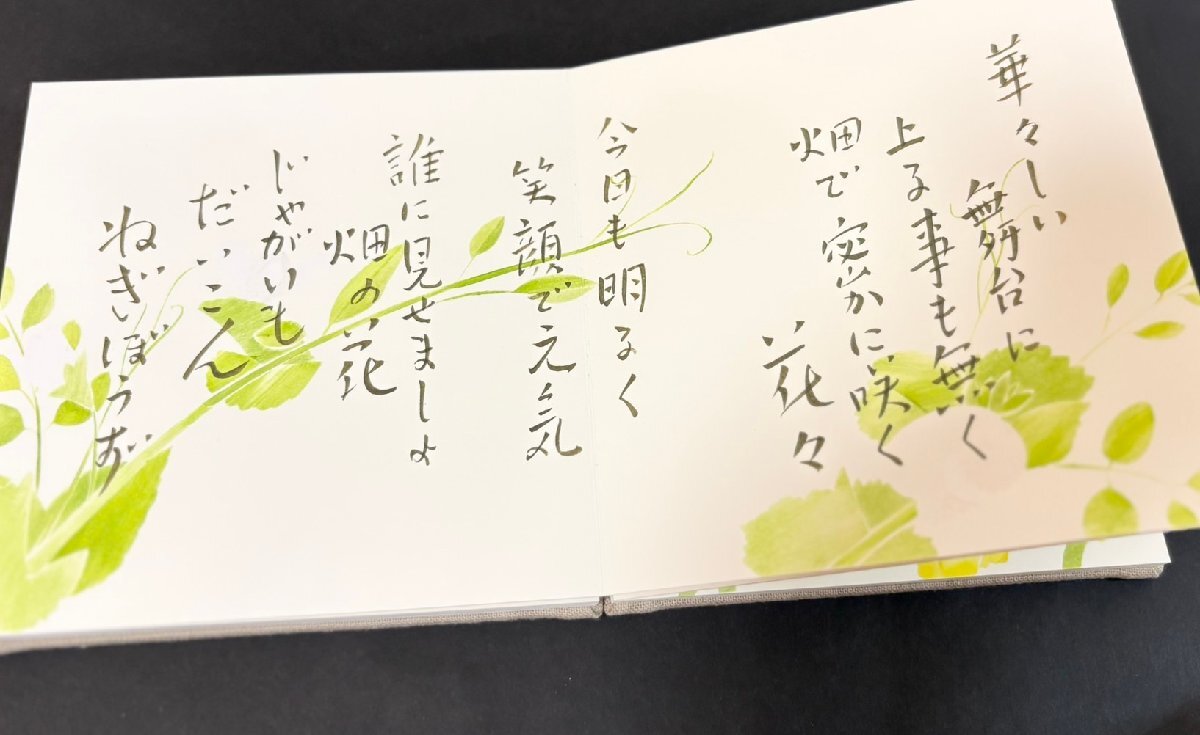 華々しい
舞台に
上る事も無く
畑で密かに咲く
花々
今日も明るく
笑顔で元気
誰に見せましょ
畑の花
じゃがいも
だいこん
ねぎぼうず